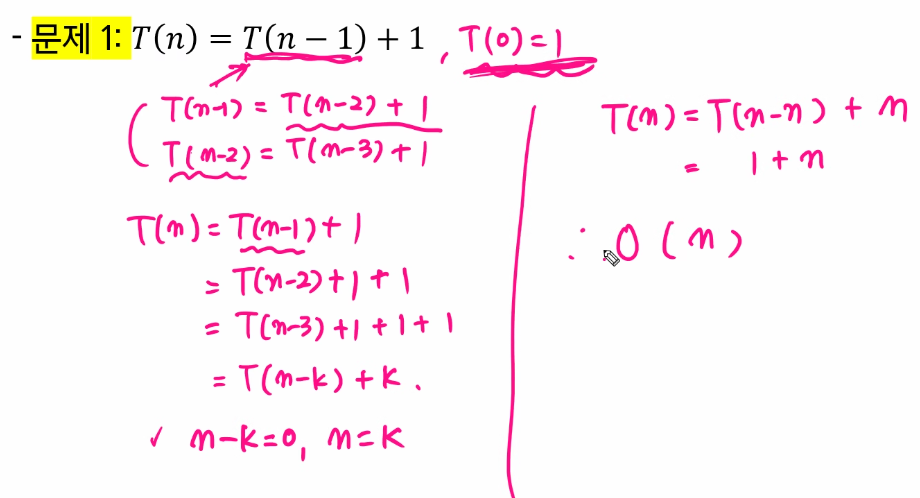 - 문제 1: T(n) = T(n − 1) + 1 , T(0) = 1
T(n-1) = T(n-2) + 1
T(n-2) = T(n-3) + 1
T(n) = T(n-1) + 1
= T(n-2) + 1 + 1
= T(n-3) + 1 + 1 + 1
= T(n-k) + k .
✓ n-k=0, n=k
T(n) = T(n-n) + n
= 1 + n
∴ O (n)